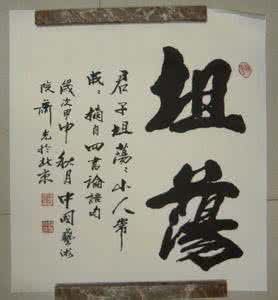 坦蕩
君子坦蕩〻小人常
戚〻摘自四書論語句
歲次甲申秋月中國藝術
院蕭於北京